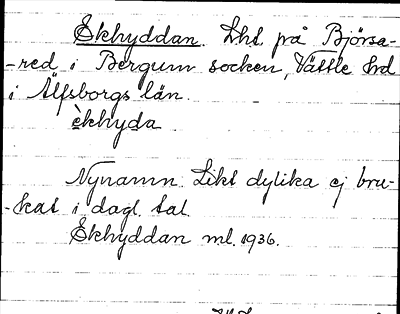 Ekhyddan. Lht. på Björsa-
-red i Bergum socken, Vättle hrd
i Älfsborgs län.
èkhyda
Nynamn. Likt dylika ej bru-
-kat i dagl. tal.
Ekhyddan ml. 1936.